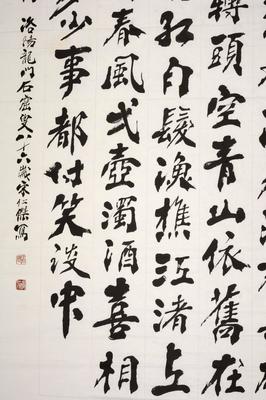 轉頭空青山依舊在
紅白髮漁樵江渚上
春風弌壺濁酒喜相
少事都付笑談中
洛陽龍門石窟叟八十六歲宋仁傑寫